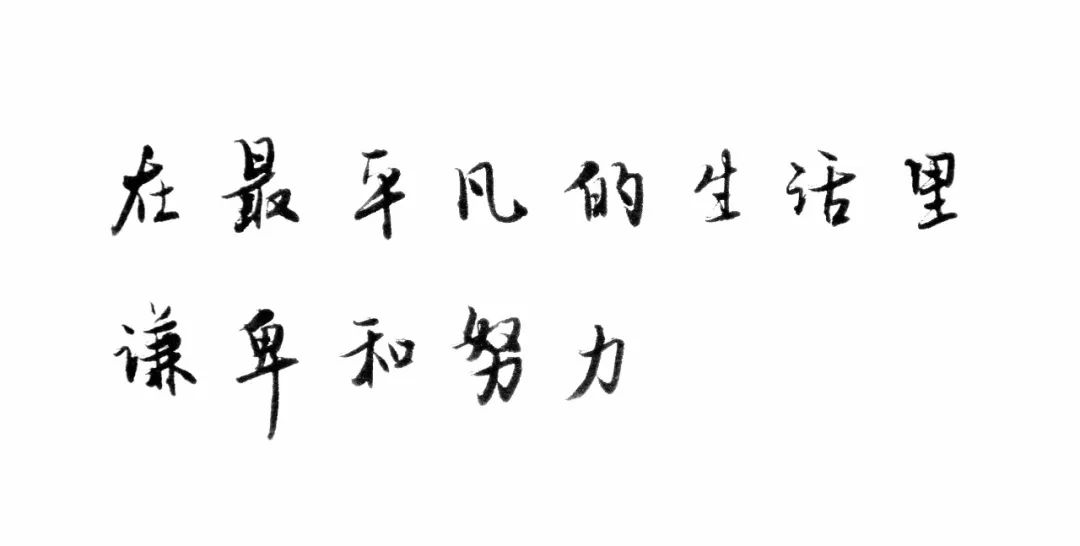 在最平凡的生活里
谦卑和努力